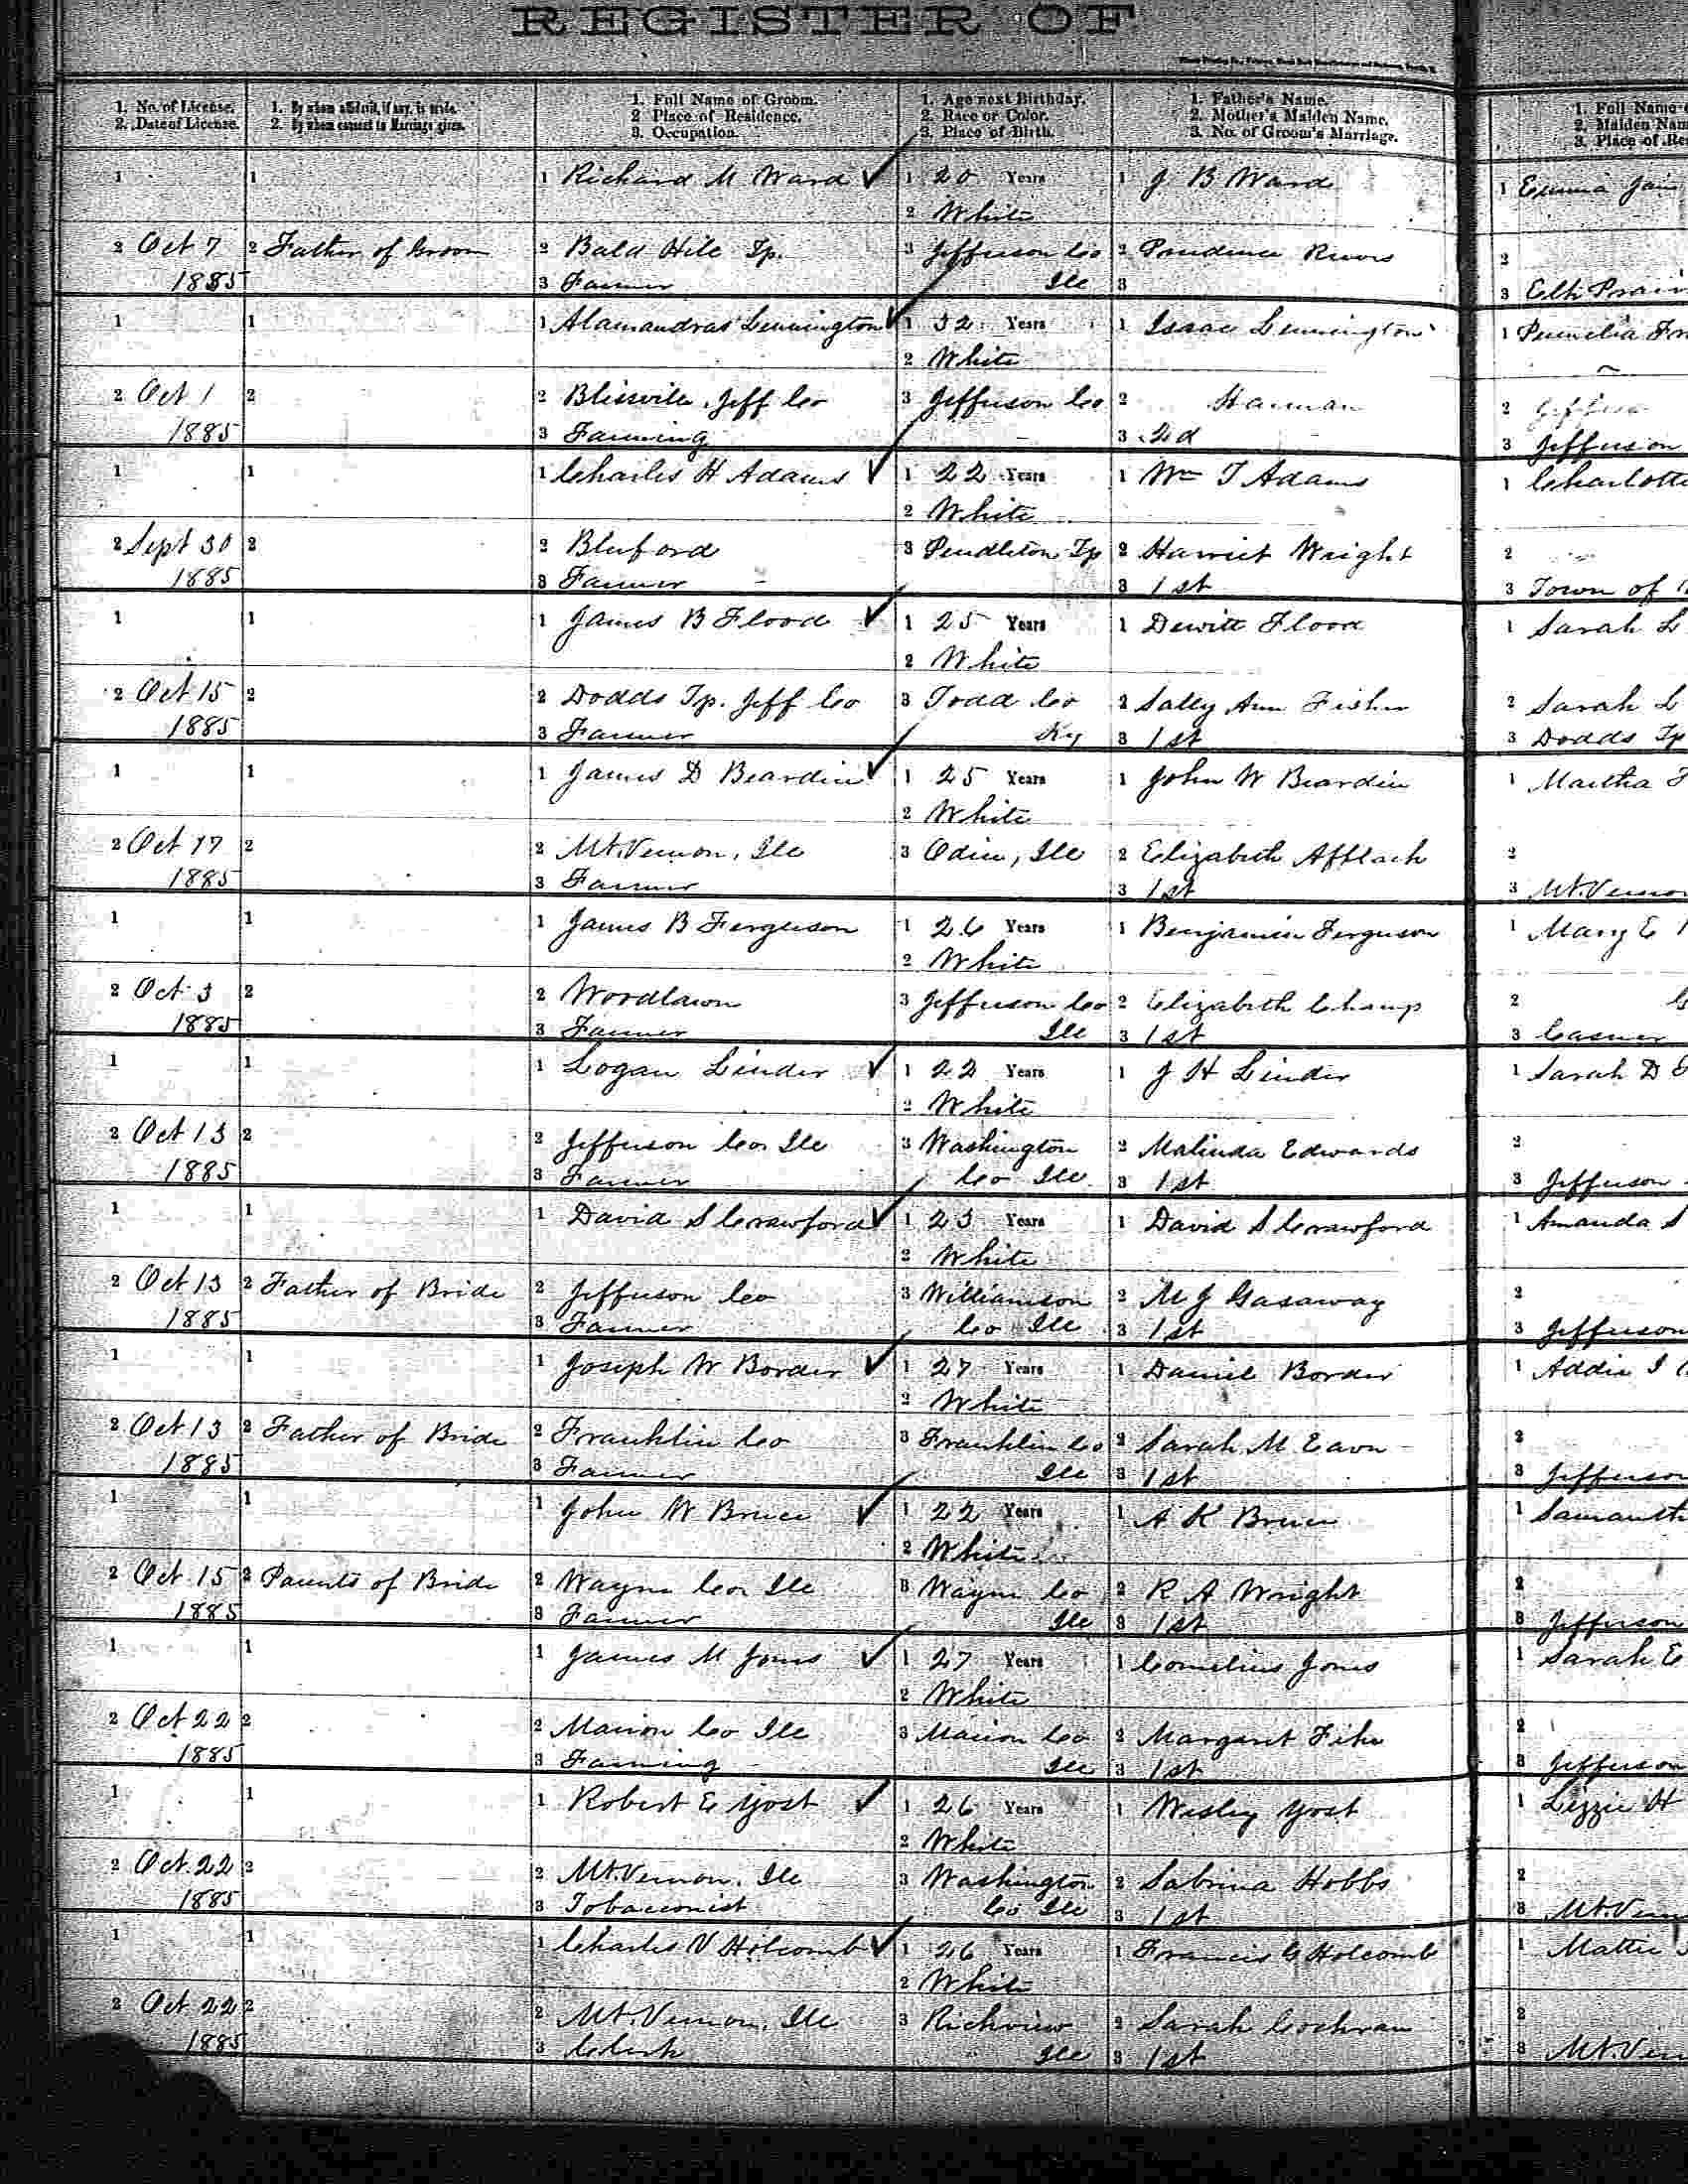 REGISTER OF
1. No. of License.
2. Date of License.
1. By whom affidavit, if any, is made.
2. By whom consent to Marriage given.
1. Full Name of Groom.
2 Place of Residence.
3. Occupation.
1. Age next Birthday.
2. Race or Color.
3. Place of Birth.
1. Father's Name.
2. Mother's Maiden Name.
3. No. of Groom's Marriage.
1. Full Name
2. Maiden Nam
3. Place of Re
1 1 1 Richard M Ward ✓ 1 20 Years 1 J B Ward 1 Emma Jan
2 White
2 Oct 7 2 Father of Groom 2 Bald Hill Tp. 3 Jefferson Co 2 Prudence Rivers 2
1885 3 Farmer Ill 3 3 Elk Prair
1 1 1 Alamandras Lemmington ✓ 1 32 Years 1 Isaac Lemmington 1
2 White
2 Oct 1 2 2 Blissville, Jeff Co 3 Jefferson Co 2 Harman 2
1885 3 Farming 3 2d 3 Jefferson
1 1 1 Charles H Adams ✓ 1 22 Years 1 Wm T Adams 1 Charlotte
2 White
2 Sept 30 2 2 Bluford 3 Pendleton Tp 2 Harriet Wright 2
1885 3 Farmer 3 1st 3 Town of
1 1 1 James B Flood ✓ 1 25 Years 1 Dewitt Flood 1 Sarah L
2 White
2 Oct 15 2 2 Dodds Tp. Jeff Co 3 Todd Co 2 Sally Ann Fisher 2 Sarah L
1885 3 Farmer Ky 3 1st 3 Dodds Tp
1 1 1 James D Beardin ✓ 1 25 Years 1 John W Beardin 1 Martha F
2 White
2 Oct 17 2 2 Mt. Vernon, Ill 3 Odin, Ill 2 Elizabeth Afflach 2
1885 3 Farmer 3 1st 3 Mt. Vernon
1 1 1 James B Ferguson 1 26 Years 1 Benjamin Ferguson 1 Mary E
2 White
2 Oct 3 2 2 Woodlawn 3 Jefferson Co 2 Elizabeth Champ 2
1885 3 Farmer Ill 3 1st 3 Casner
1 1 1 Logan Linder ✓ 1 22 Years 1 J H Linder 1 Sarah D
2 White
2 Oct 13 2 2 Jefferson Co. Ill 3 Washington 2 Malinda Edwards 2
1885 3 Farmer Co Ill. 3 1st 3 Jefferson
1 1 1 David S Crawford ✓ 1 23 Years 1 David S Crawford 1 Amanda S
2 White
2 Oct 13 2 Father of Bride 2 Jefferson Co 3 Williamson 2 M J Gasaway 2
1885 3 Farmer Co Ill 3 1st 3 Jefferson
1 1 1 Joseph W Border ✓ 1 27 Years 1 Daniel Border 1 Addie I
2 White
2 Oct 13 2 Father of Bride 2 Franklin Co 3 Franklin Co 2 Sarah M Eavn 2
1885 3 Farmer Ill 3 1st 3 Jefferson
1 1 1 John W Bruce ✓ 1 22 Years 1 A K Bruce 1 Samanth
2 White
2 Oct 15 2 Parents of Bride 2 Wayne Co. Ill 3 Wayne Co 2 R A Wright 2
1885 3 Farmer Ill 3 1st 3 Jefferson
1 1 1 James M Jones ✓ 1 27 Years 1 Cornelius Jones 1 Sarah E
2 White
2 Oct 22 2 2 Marion Co Ill 3 Marion Co 2 Margaret Fike 2
1885 3 Farming Ill 3 1st 3 Jefferson
1 1 1 Robert E Yost ✓ 1 26 Years 1 Wesley Yost 1 Lizzie H
2 White
2 Oct. 22 2 2 Mt. Vernon. Ill 3 Washington 2 Sabrina Hobbs 2
1885 3 Tobacconist Co Ill 3 1st 3 Mt. Vern
1 1 1 Charles V Holcomb ✓ 1 26 Years 1 Francis G Holcomb 1 Mattie
2 White
2 Oct. 22 2 2 Mt. Vernon, Ill 3 Richview 2 Sarah Cochran 2
1885 3 Clerk Ill 3 1st 3 Mt. Ver